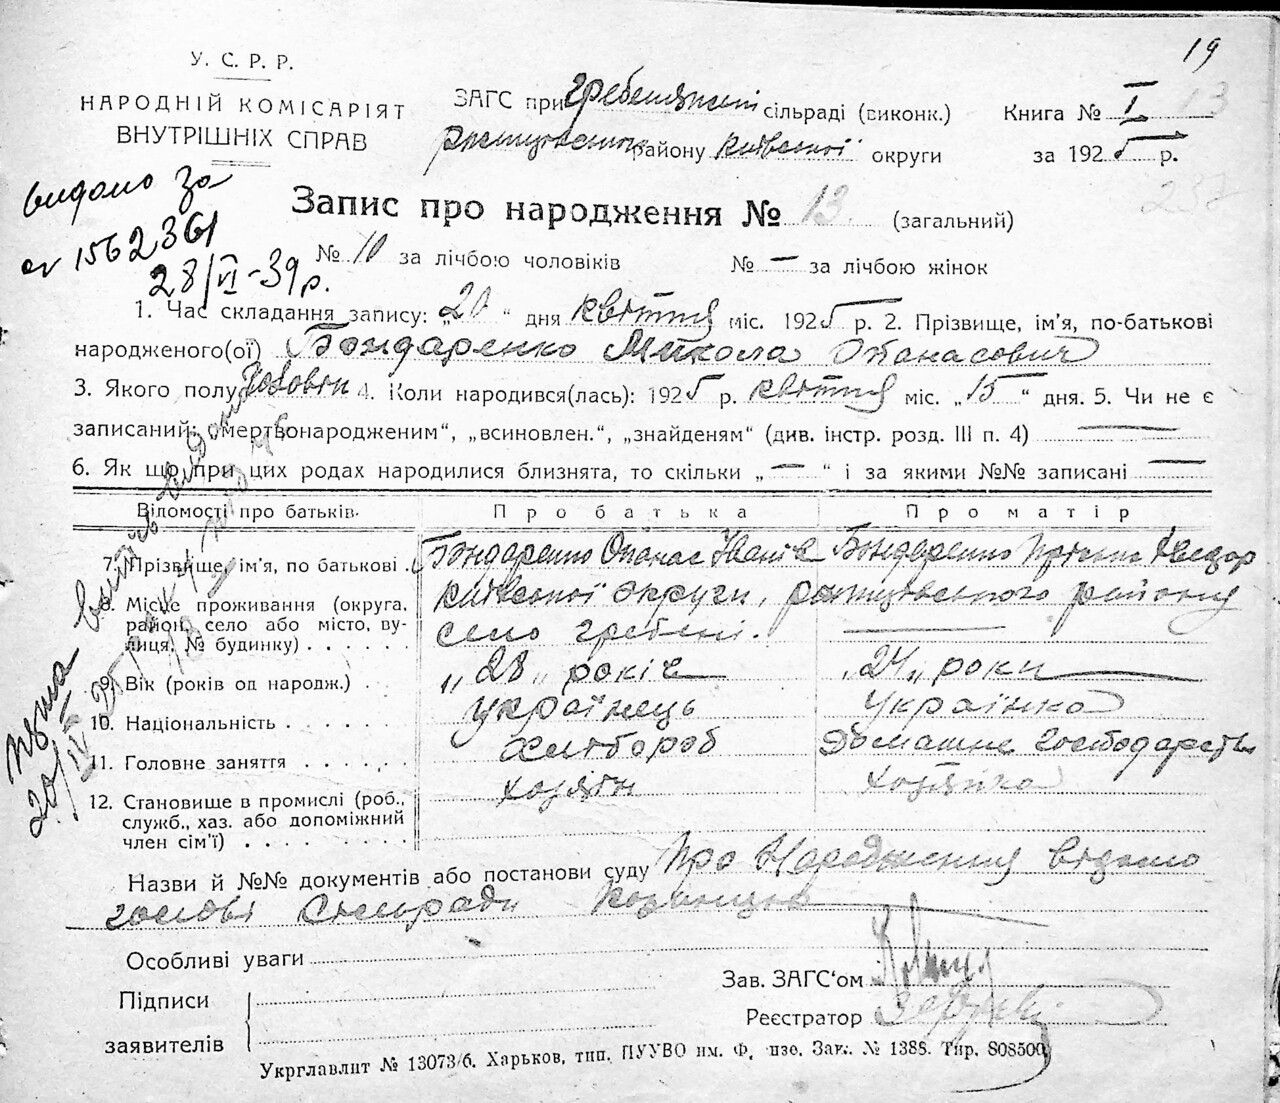 19
У. С. Р. Р.
НАРОДНІЙ КОМІСАРІЯТ
ВНУТРІШНІХ СПРАВ
ЗАГС при сільраді (виконк.)
району Київської округи
Книга № I 13
за 1925 р.
237
видано за
1562361
28/VI-39 р.
Запис про народження № 13 (загальний)
№ 10 за лічбою чоловіків № — за лічбою жінок
1. Час складання запису: „20“ дня квіття міс. 1925 р. 2. Прізвище, ім'я, по-батькові
народженого(ої) Бондаренко Микола Опанасович
3. Якого полу 4. Коли народився(лась): 1925 р. квіття міс. „15“ дня. 5. Чи не є
записаний: „мертвонародженим“, „всиновлен.“, „знайденям“ (див. інстр. розд. III п. 4) —
6. Як що при цих родах народилися близнята, то скільки „—“ і за якими №№ записані —
Відомості про батьків. Про батька Про матір
7. Прізвище, ім'я, по батькові . Бондаренко Опанас Іванів Бондаренко
8. Місце проживання (округа, район, село або місто, вулиця, № будинку) . . . . . . Київської округи, району
село Гребені. —
9. Вік (років од народж.) . . „28„ років „24„ роки
10. Національність . . . . . . . українець Українка
11. Головне заняття . . . . . . Хлібороб Домашнє господарство
12. Становище в промислі (роб., служб., хаз. або допоміжний член сім'ї) . . . . . . . . хозяїн хозяїка
Назви й №№ документів або постанови суду Про Народження видано
голові Сільради
Особливі уваги
Підписи
заявителів
Зав. ЗАГС'ом
Реєстратор
Укрглавлит № 13073/б. Харьков, тип. ПУУВО им. Ф. Зак. № 1388. Тир. 808500